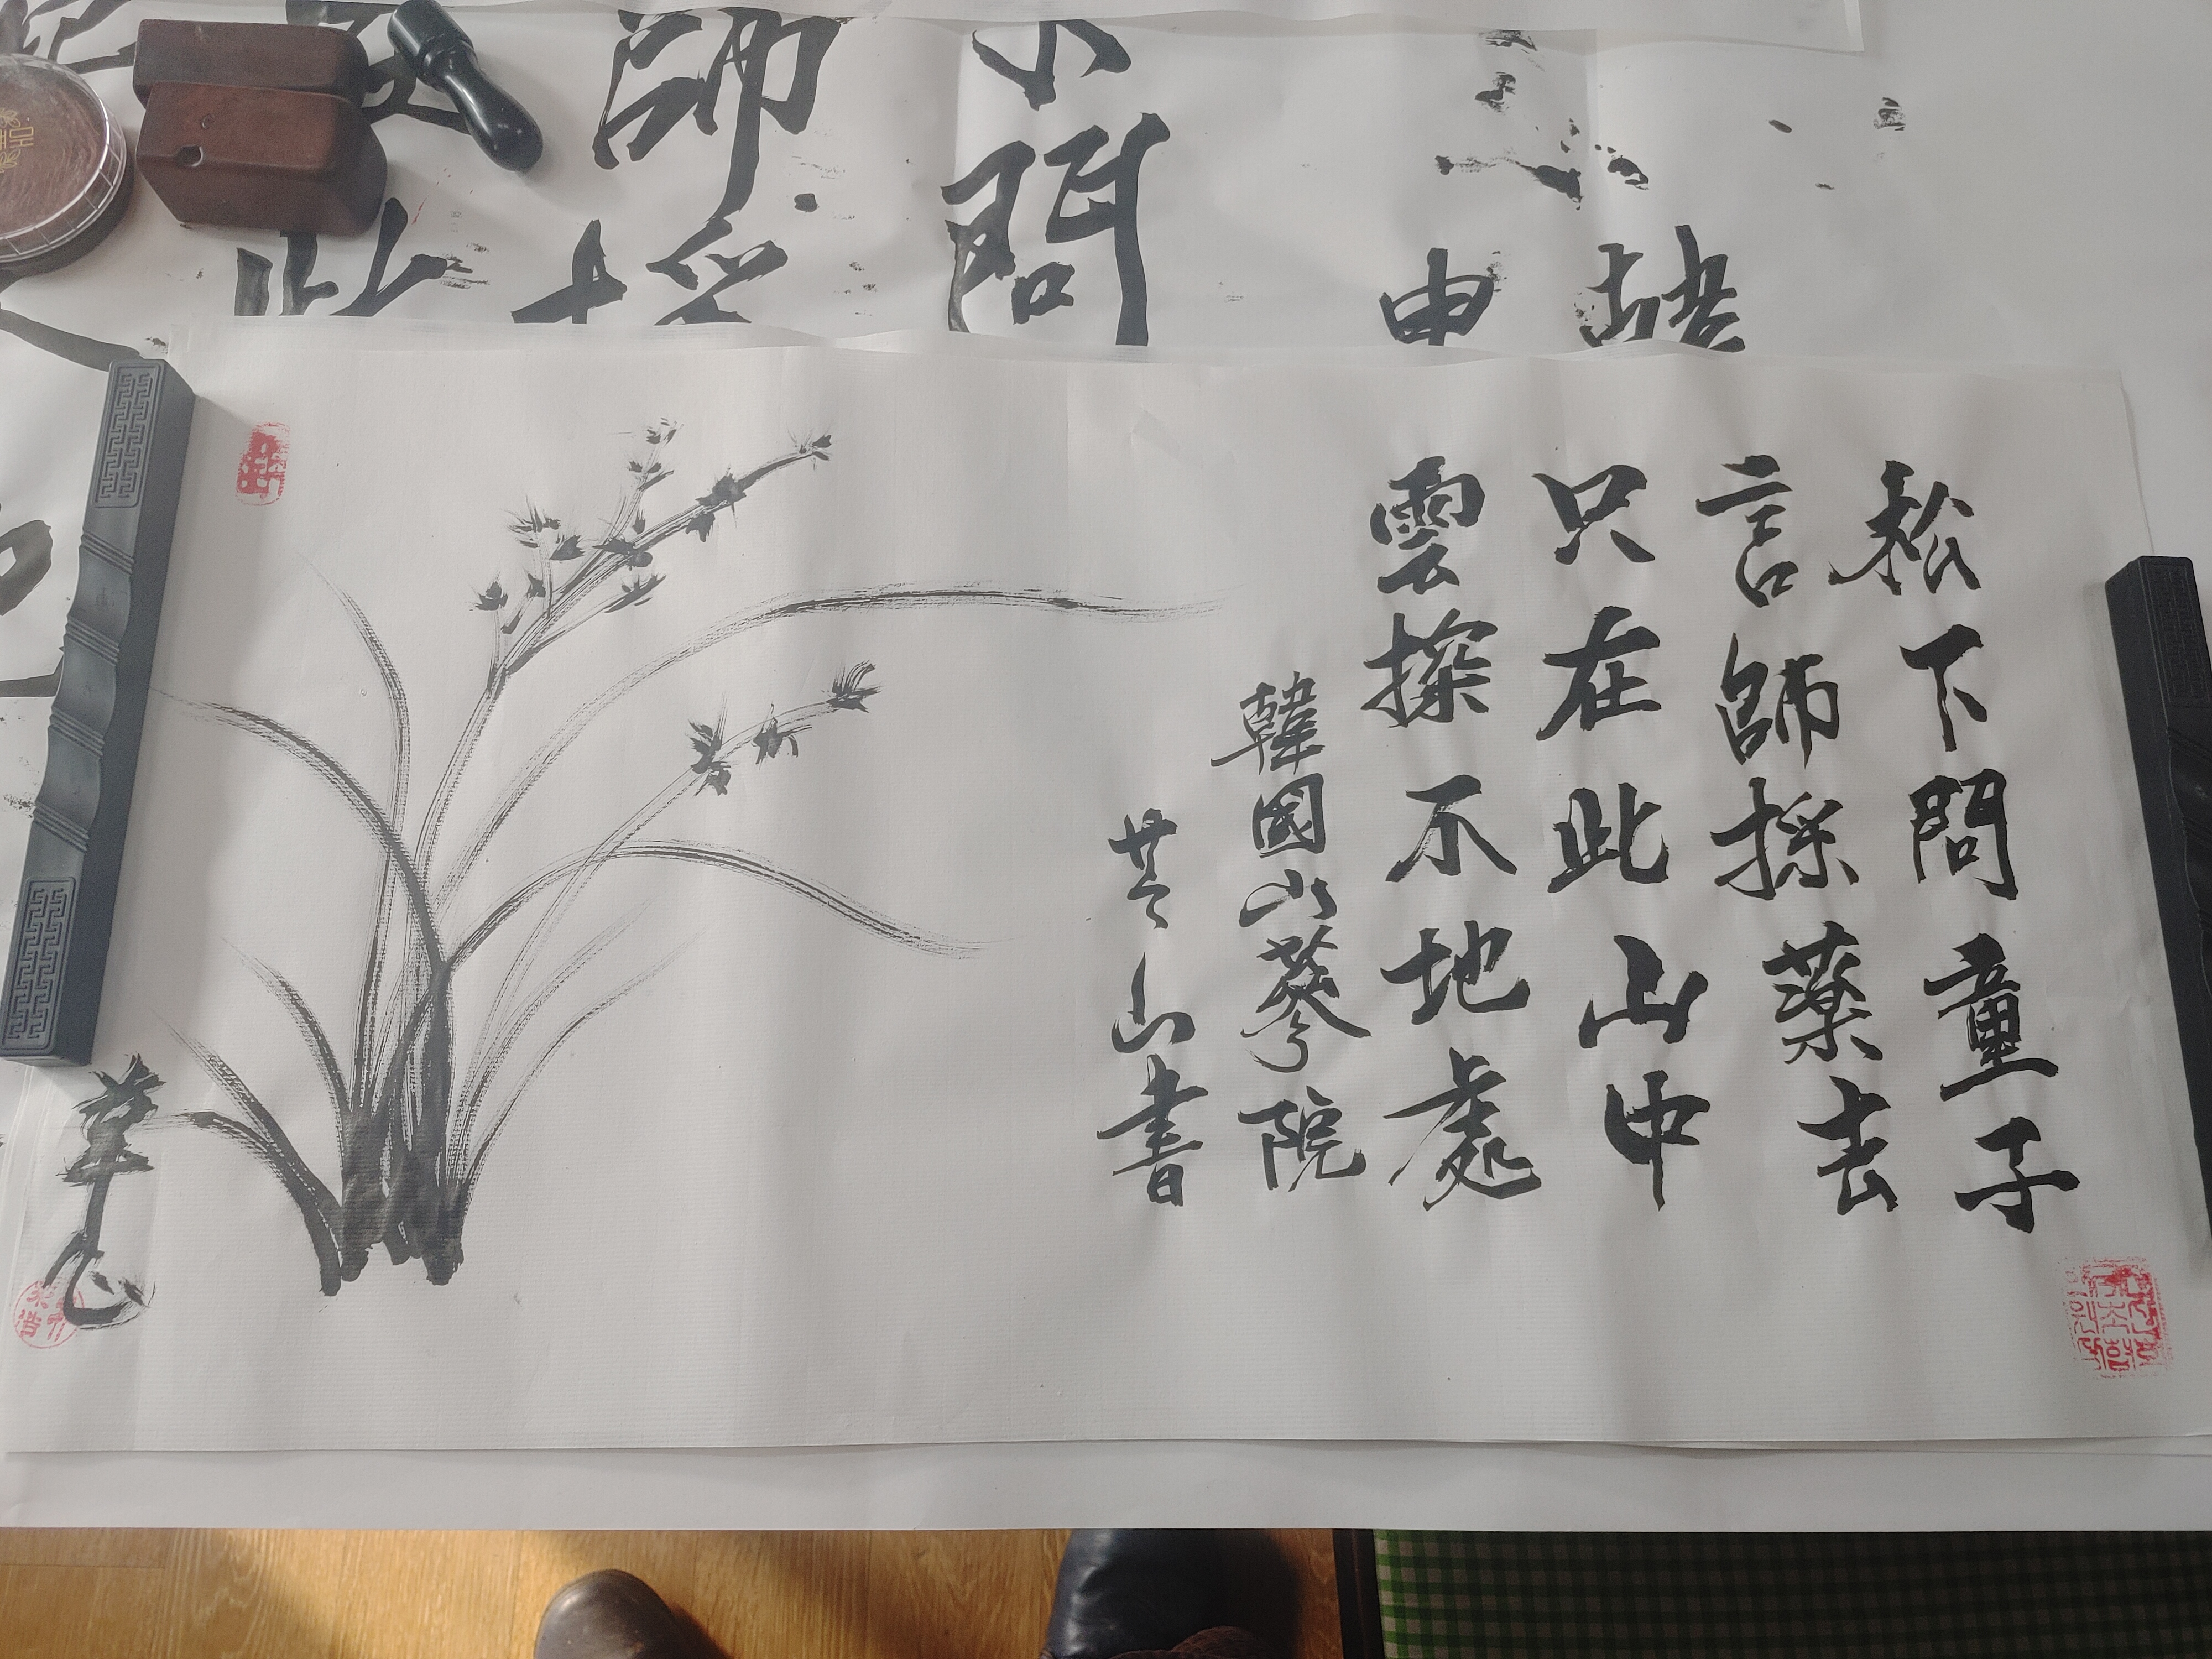 松下問童子
言師採藥去
只在此山中
雲探不地處
韓國山蔘院
山書
問
師採
此